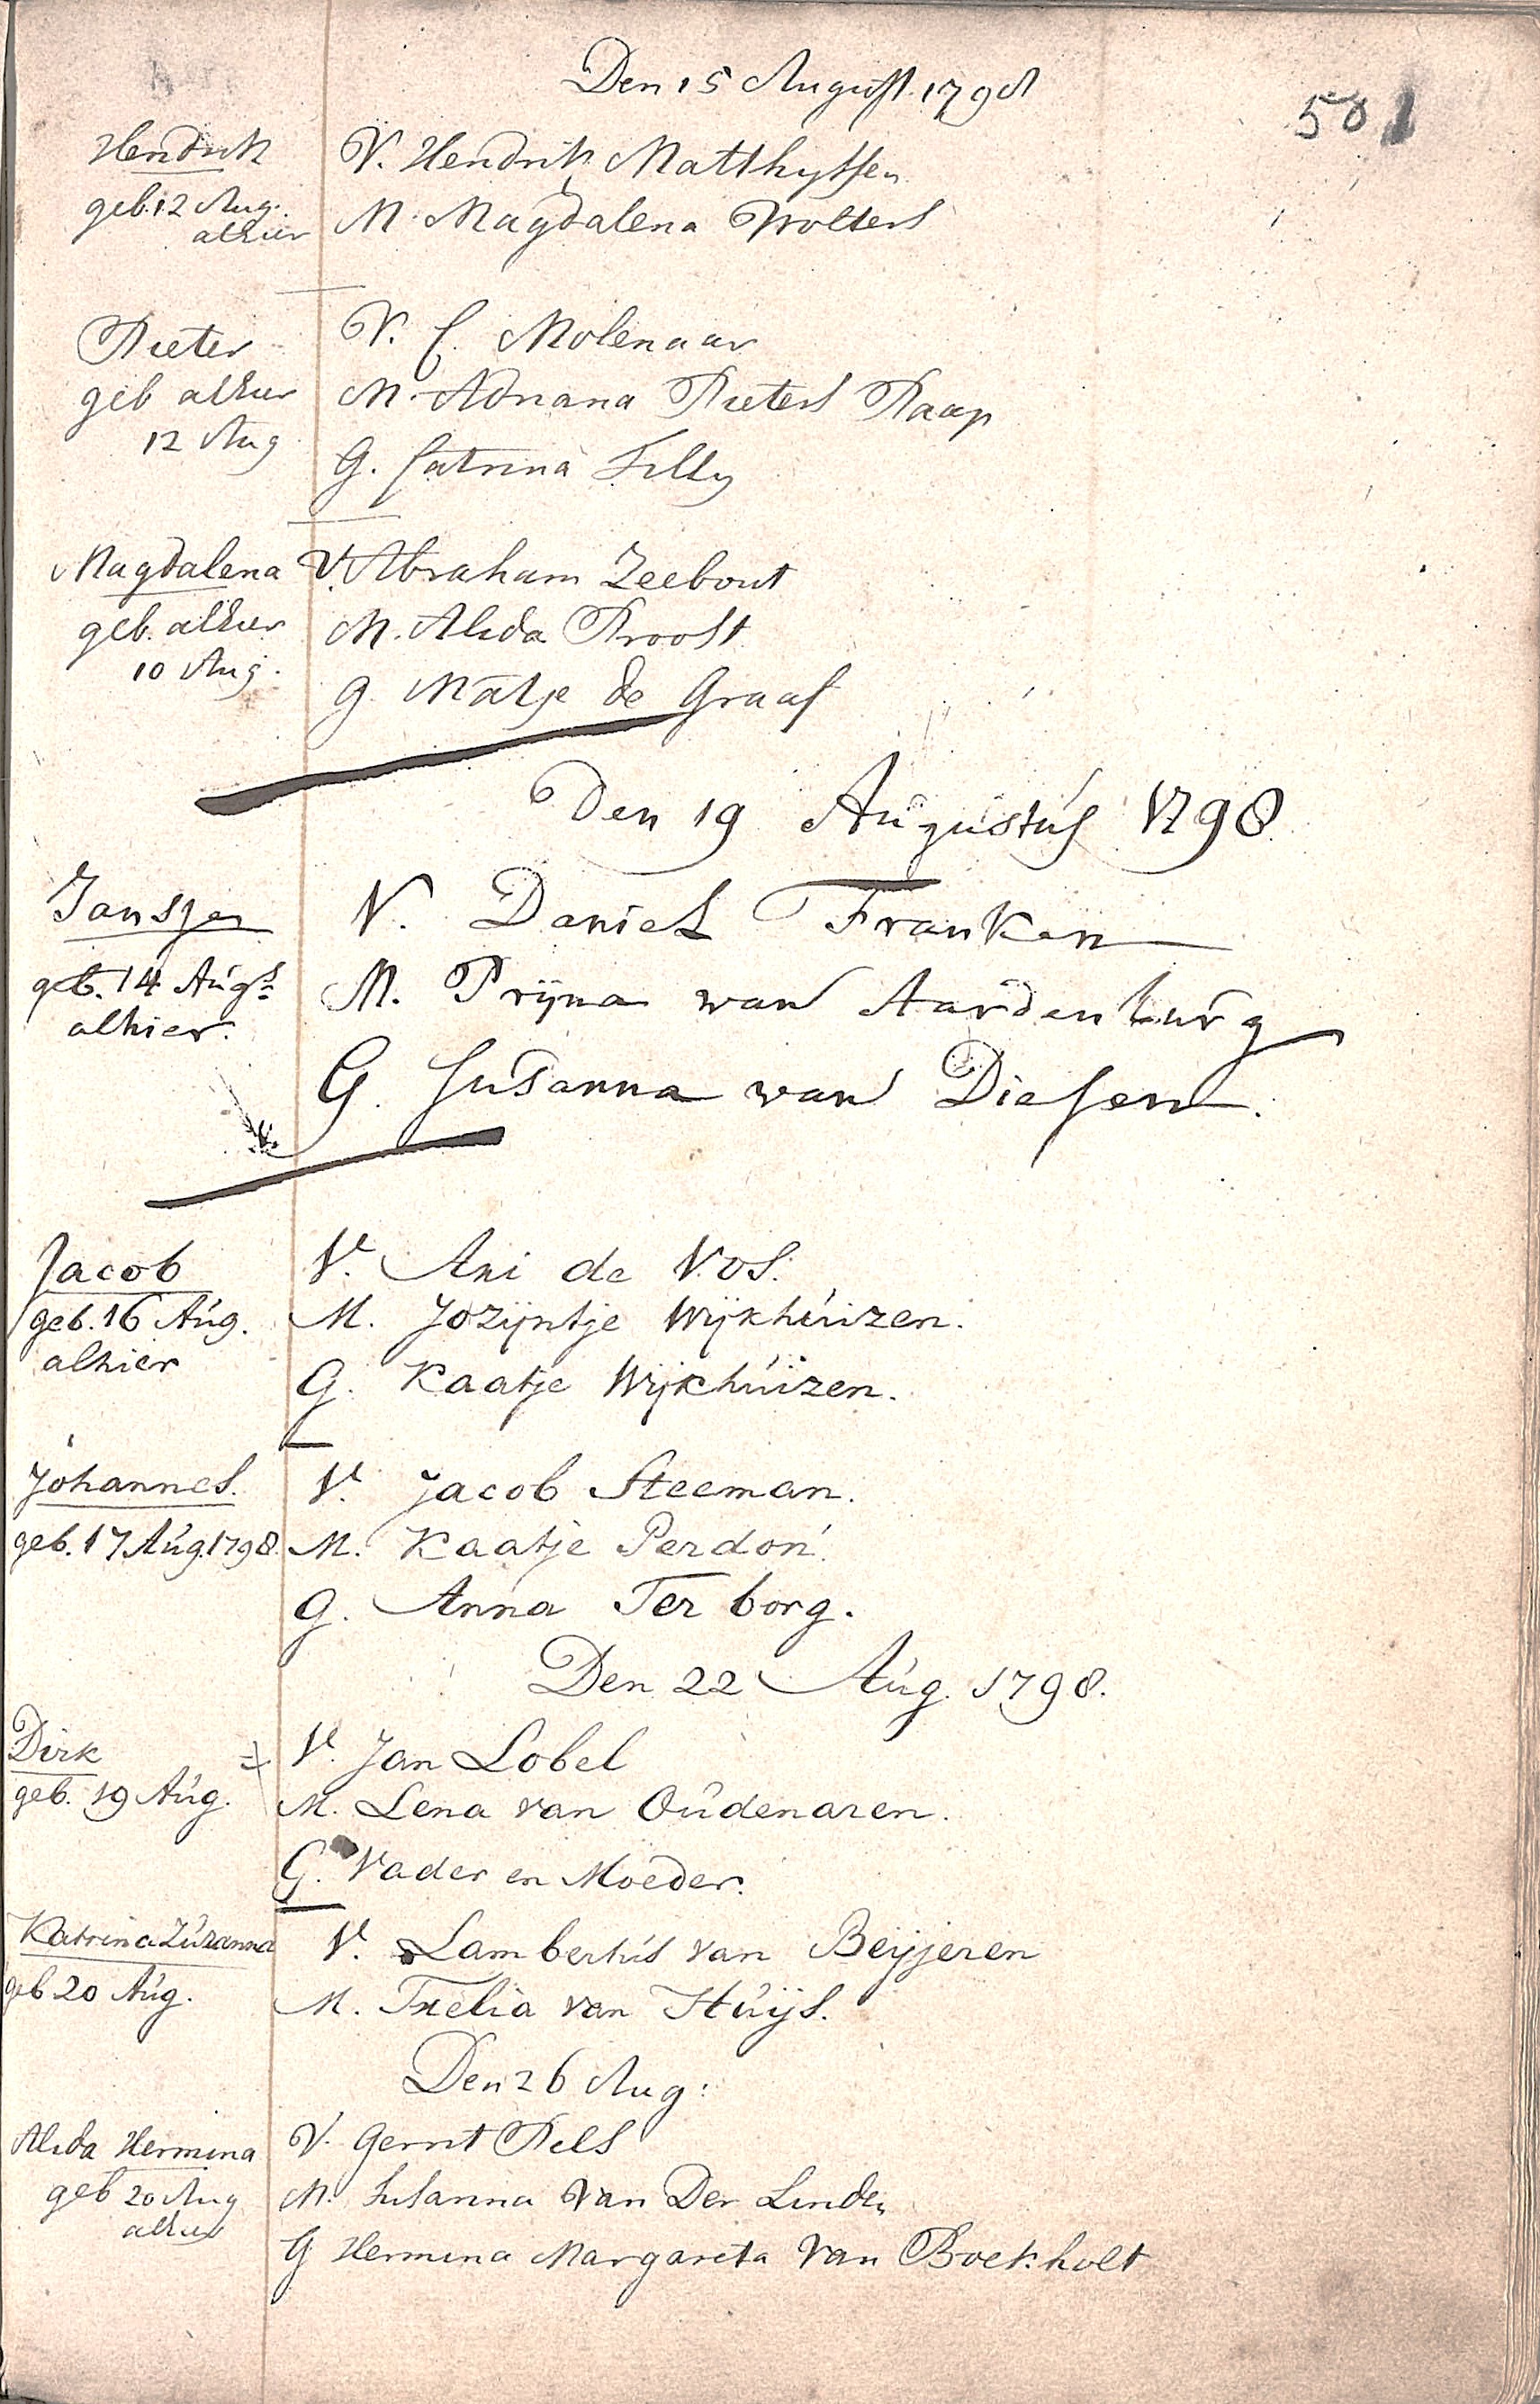 Den 15 August 1798
501
Hendrik
geb. 12 Aug.
alhier
V. Hendrik Matthyssen
M. Magdalena Wolters
Pieter
geb alhier
12 Aug
V. C. Molenaar
M. Adriana Pieters Paap
G. Catrina Filly
Magdalena
geb. alhier
10 Aug.
V. Abraham Zeebout
M. Alida Proost
G. Matje de Graaf
Den 19 Augustus 1798
Jansjen
geb. 14 Augs
alhier.
V. Daniel Franken
M. Prijna van Aardenburg
G. Susanna van Diesen.
Jacob
geb. 16 Aug.
alhier
V. Ari de Vos.
M. Jozijntje Wijkhuizen.
G. Kaatje Wijkhuizen.
Johannes.
geb. 17 Aug. 1798.
V. Jacob Steeman.
M. Kaatje Perdon.
G. Anna Ter borg.
Den 22 Aug. 1798.
Dirk
geb. 19 Aug.
V. Jan Lobel
M. Lena van Oudenaren.
G. Vader en Moeder.
Katrina Zuzanna
geb 20 Aug.
V. Lambertus van Beyjeren
M. van Huijs.
Den 26 Aug:
Alida Hermina
geb 20 Aug
alhier
V. Gerrit Pels
M. Susanna Van Der Linden
G Hermina Margareta Van Boekholt